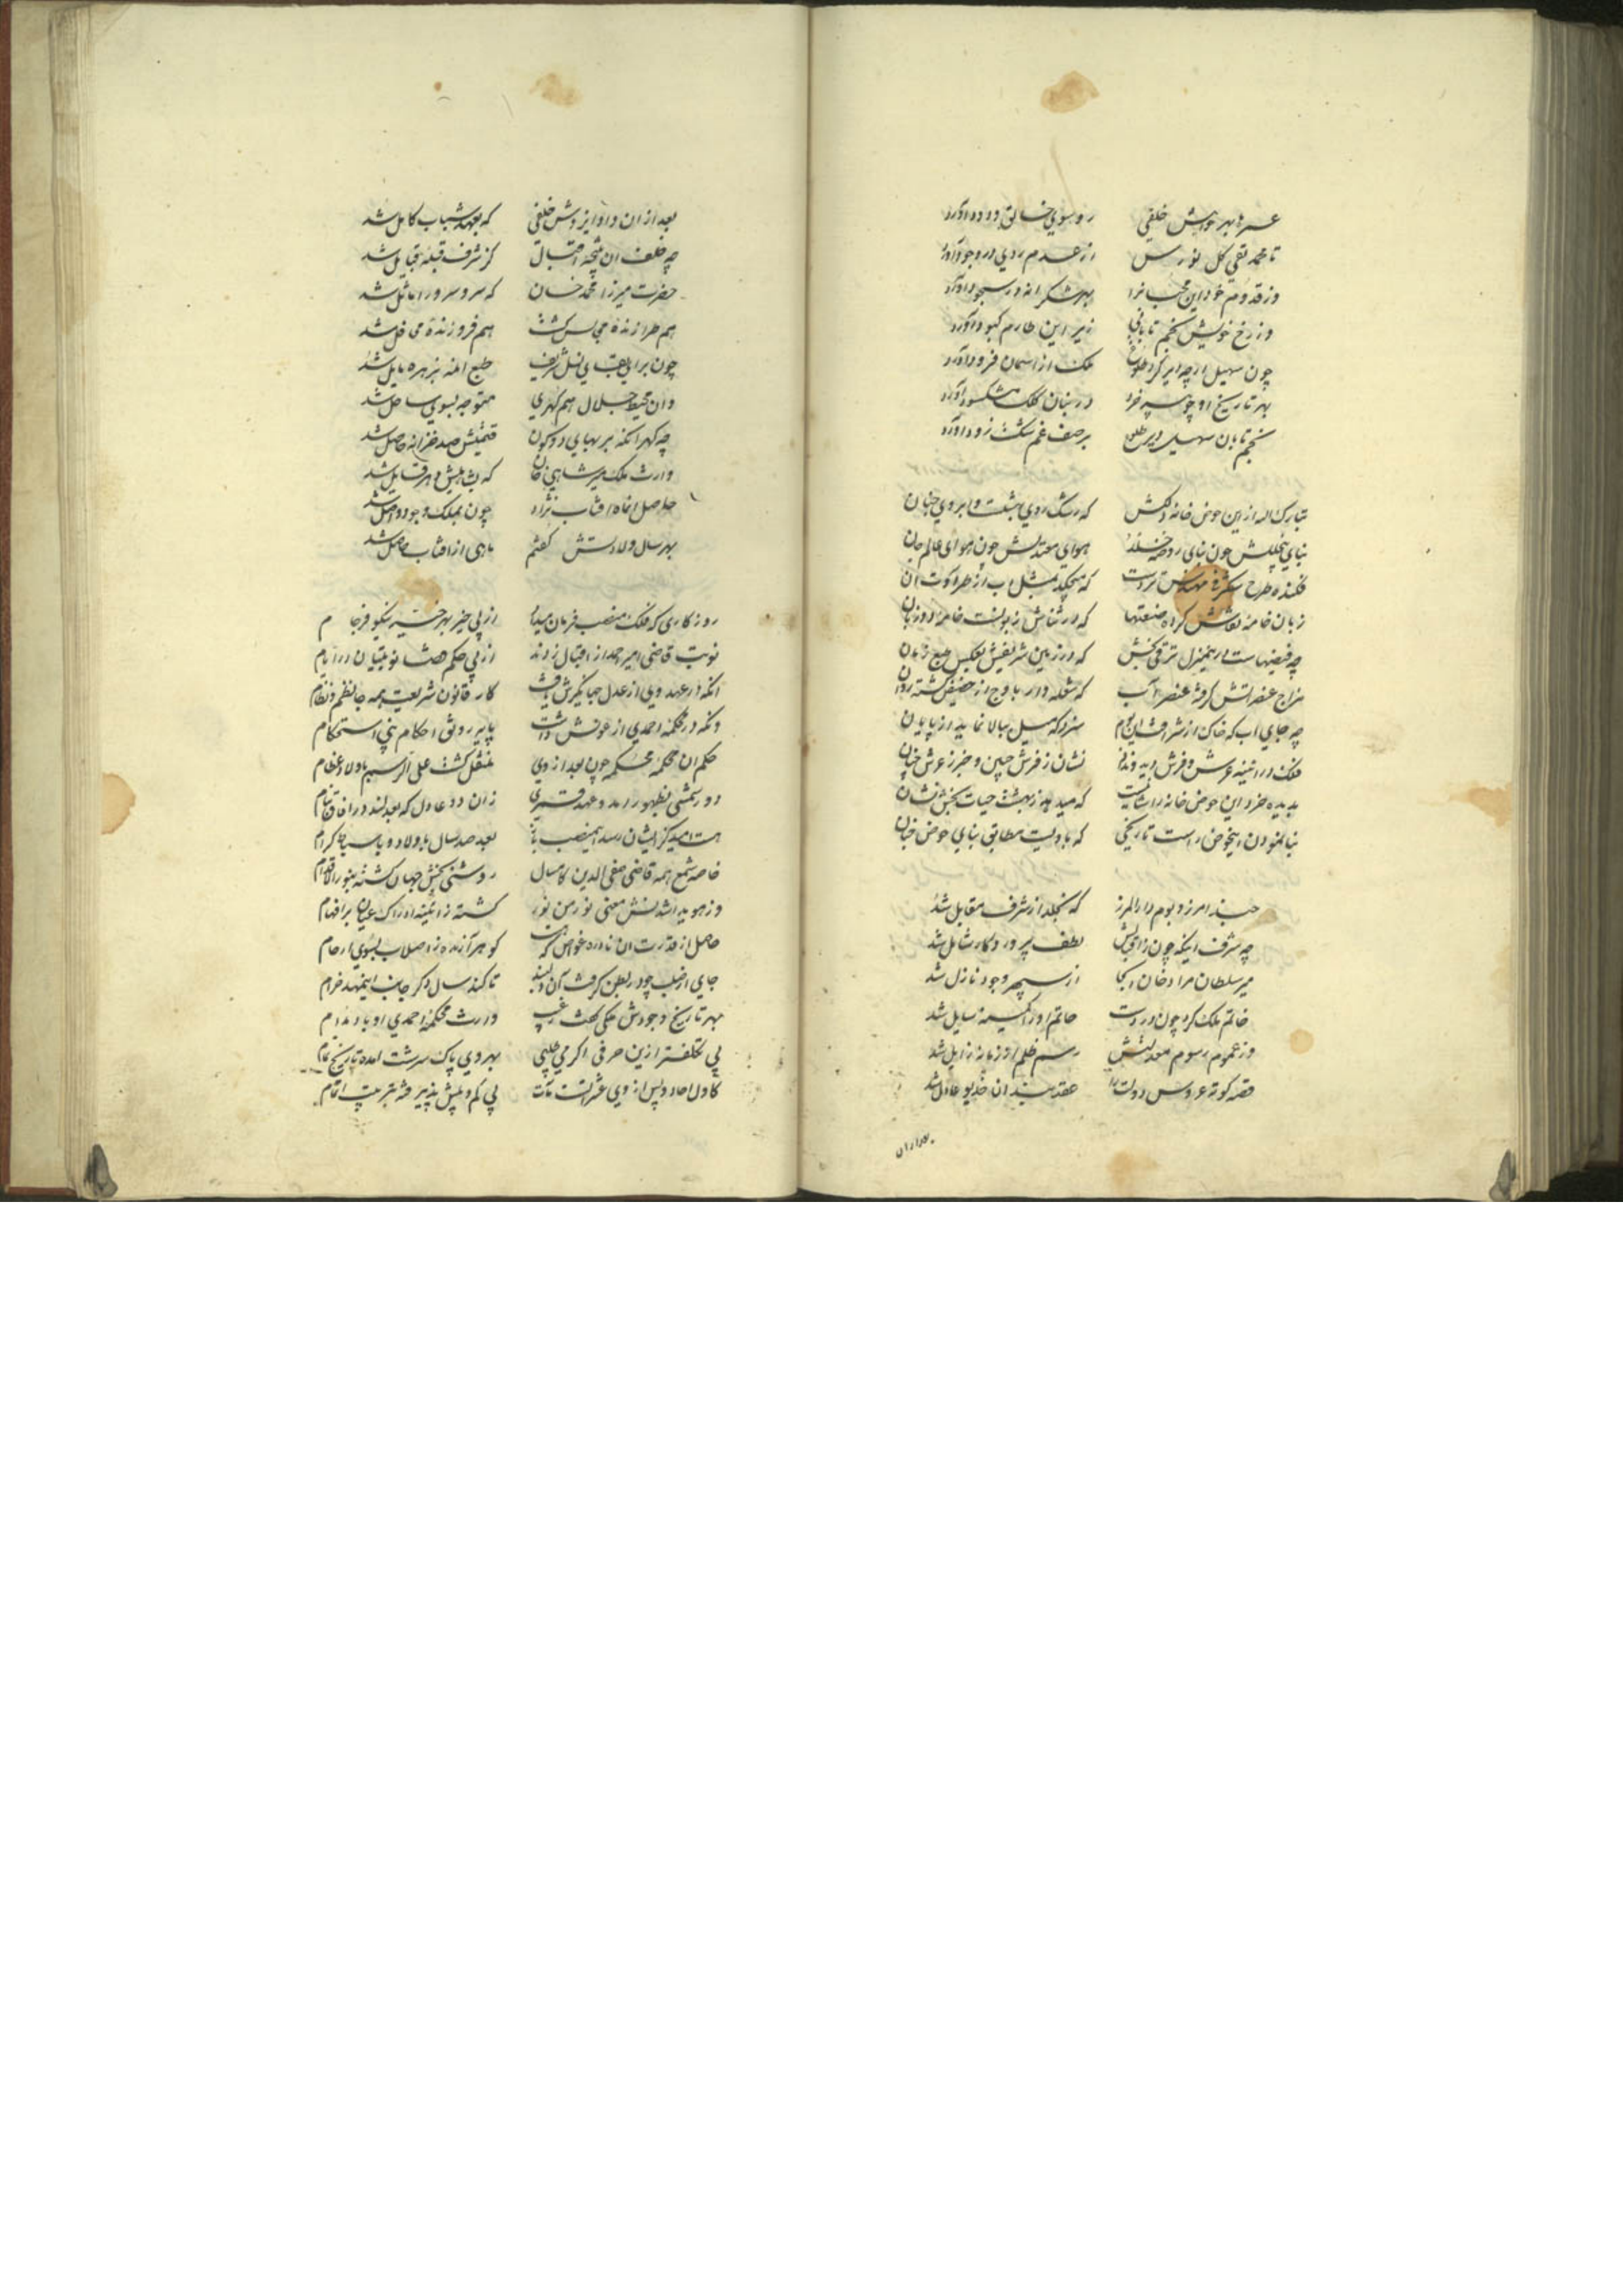 عمرها بهر خواهش خلفی روسوی خالق ودود آورد
تا محمد تقی کل نورس از عدم روی در وجود آورد
وز قدوم خود این محب را بهر شکرانه در سجود آورد
وز رخ خویش نجم تابانی زیر این طارم کبود آورد
چون سهیل ارچه ابر کرد طلوع ملک از اسمان فرود آورد
بهر تاریخ او چو سپهر خرد در بنان کلک مشکسود آورد
نجم تابان سهیل دیر طلوع بر صف غم شکست زود آورد
تبارک اله ازین حوض خانه دلکش که رشک روی بهشتست و ابروی جنان
بنای بنای روضه خلد هوای معتدلش چون هوای عالم جان
فکنده طرح شکرفی مهندس که میچکد بمثل اب از طراوت ان
زبان خامه نقاش کرده صنعتها که در ثنایش زبونست خامه دوزبان
چه فیضهاست در این منزل ترقی بخش که در زمین شریفش بعکس طبع زمان
مزاج عنصر اتش کرفته عنصر آب که شعله وار باوج از حضیض کشته روان
چه جای اب که خاک از شرافت این بوم سزد که میل ببالا نماید از پایان
فلک در اینه عرش و فرش دید نشان ز فرش چنین و خبر ز عرش چنان
بدیده خرد این حوض خانه را شانیست که میدهد ز بهشت حیات بخش نشان
بنا نمودن این حوض راست تاریخی که با مطابق بنای حوض جنان
حبذا مرز و بوم دار المرز که بخلد از شرف مقابل شد
چه شرف اینکه چون لطف پرورد کار شامل شد
میر سلطان مراد خان از سپهر وجود نازل شد
خاتم ملک کرد چون در دست حاتم او را کمینه سایل شد
وز عموم رسوم معدلتش رسم ظلم از زمانه زایل شد
قصه کوته عروس دولت را عقد بند ان خدیو عادل شد
بعد ازان
بعد ازان داد ایزدش خلفی که بعهد شباب کامل شد
چه خلف ان نتیجه اقبال کز شرف قبله قبایل شد
حضرت میرزا محمد خان که سر و سرور اماثل شد
هم طرازنده مجالس کشت هم فروزنده محافل شد
چون برای بقای نسل شریف طبع انمه بزهره مایل شد
وان محیط جلال هم کهری متوجه بسوی ساحل شد
چه کهر انکه بر بهای دو کون قیمتش صد خزانه حاصل شد
وارث ملک میر شاهی خان که
حاصل انماه افتاب نژاد چون بملک وجود واصل شد
بهر سال ولادتش کفتم ماهی از افتاب حاصل شد
روزکاری که فلک منصب فرمان میداد از پی خیر بهر خسته نیکو فرجام
نوبت قاضی میر احمد از اقبال زدند از پی حکم نوبتیان در ایام
انکه در عهد وی از عدل جهانکیرش یافت کار قانون شریعت همه جا نظم و نظام
وانکه در محکمه احمدی از عونش داشت پایه رونق احکام نبی استحکام
حکم ان محکمه محکم چون بعد از وی منتقل کشت علی الرسم باولاد عظام
دو بظهور امد و عهد قمری زان دو عادل که بعدلند در افاق تمام
هست امید کز ایشان رسد این منصب باز بعد صد سال باولاد و باسباط کرام
خاصه شمع همه قاضی صفی الدین کامسال روشنی بخش جهان کشته بنور الاقدام
وز هویدا شدنش معنی نور من نور کشته ز آئینه ادراک عیان بر افهام
حاصل از قدرت ان نادره غواص که کوهر آرنده ز اصلاب بسوی ارحام
جای از صلب چو در بطن کرفت آن دلبند تا کند سال دکر جانب این مهد خرام
بهر تاریخ وجودش ملکی کفت ز غیب وارث محکمه احمدی او باد مدام
بی تکلفتر ازین حرفی اکر می طلبی بهر وی پاک سرشت امده تاریخ تمام
کاول احاد و پس از وی عشراتست مآت بی کم و بیش پذیرفته بترتیب اتمام